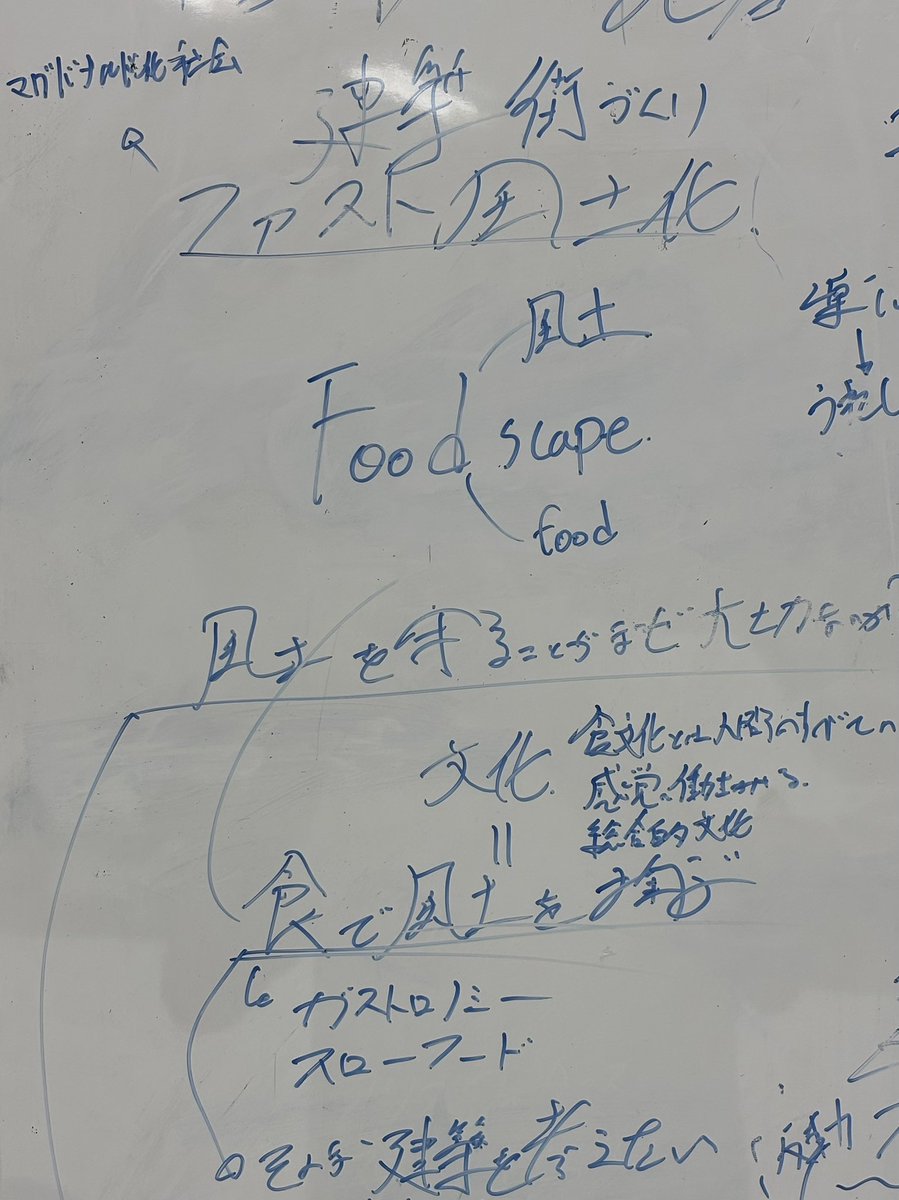 マクドナルド化社会
建築 街づくり
Q
ファスト風土化
風土
Food scape.
food
風土を守ることがなぜ大切なのか
文化
食文化とは人間のすべての
感覚を働かせる
総合的文化
=
食で風土を
ガストロノミー
スローフード
建築を考えたい